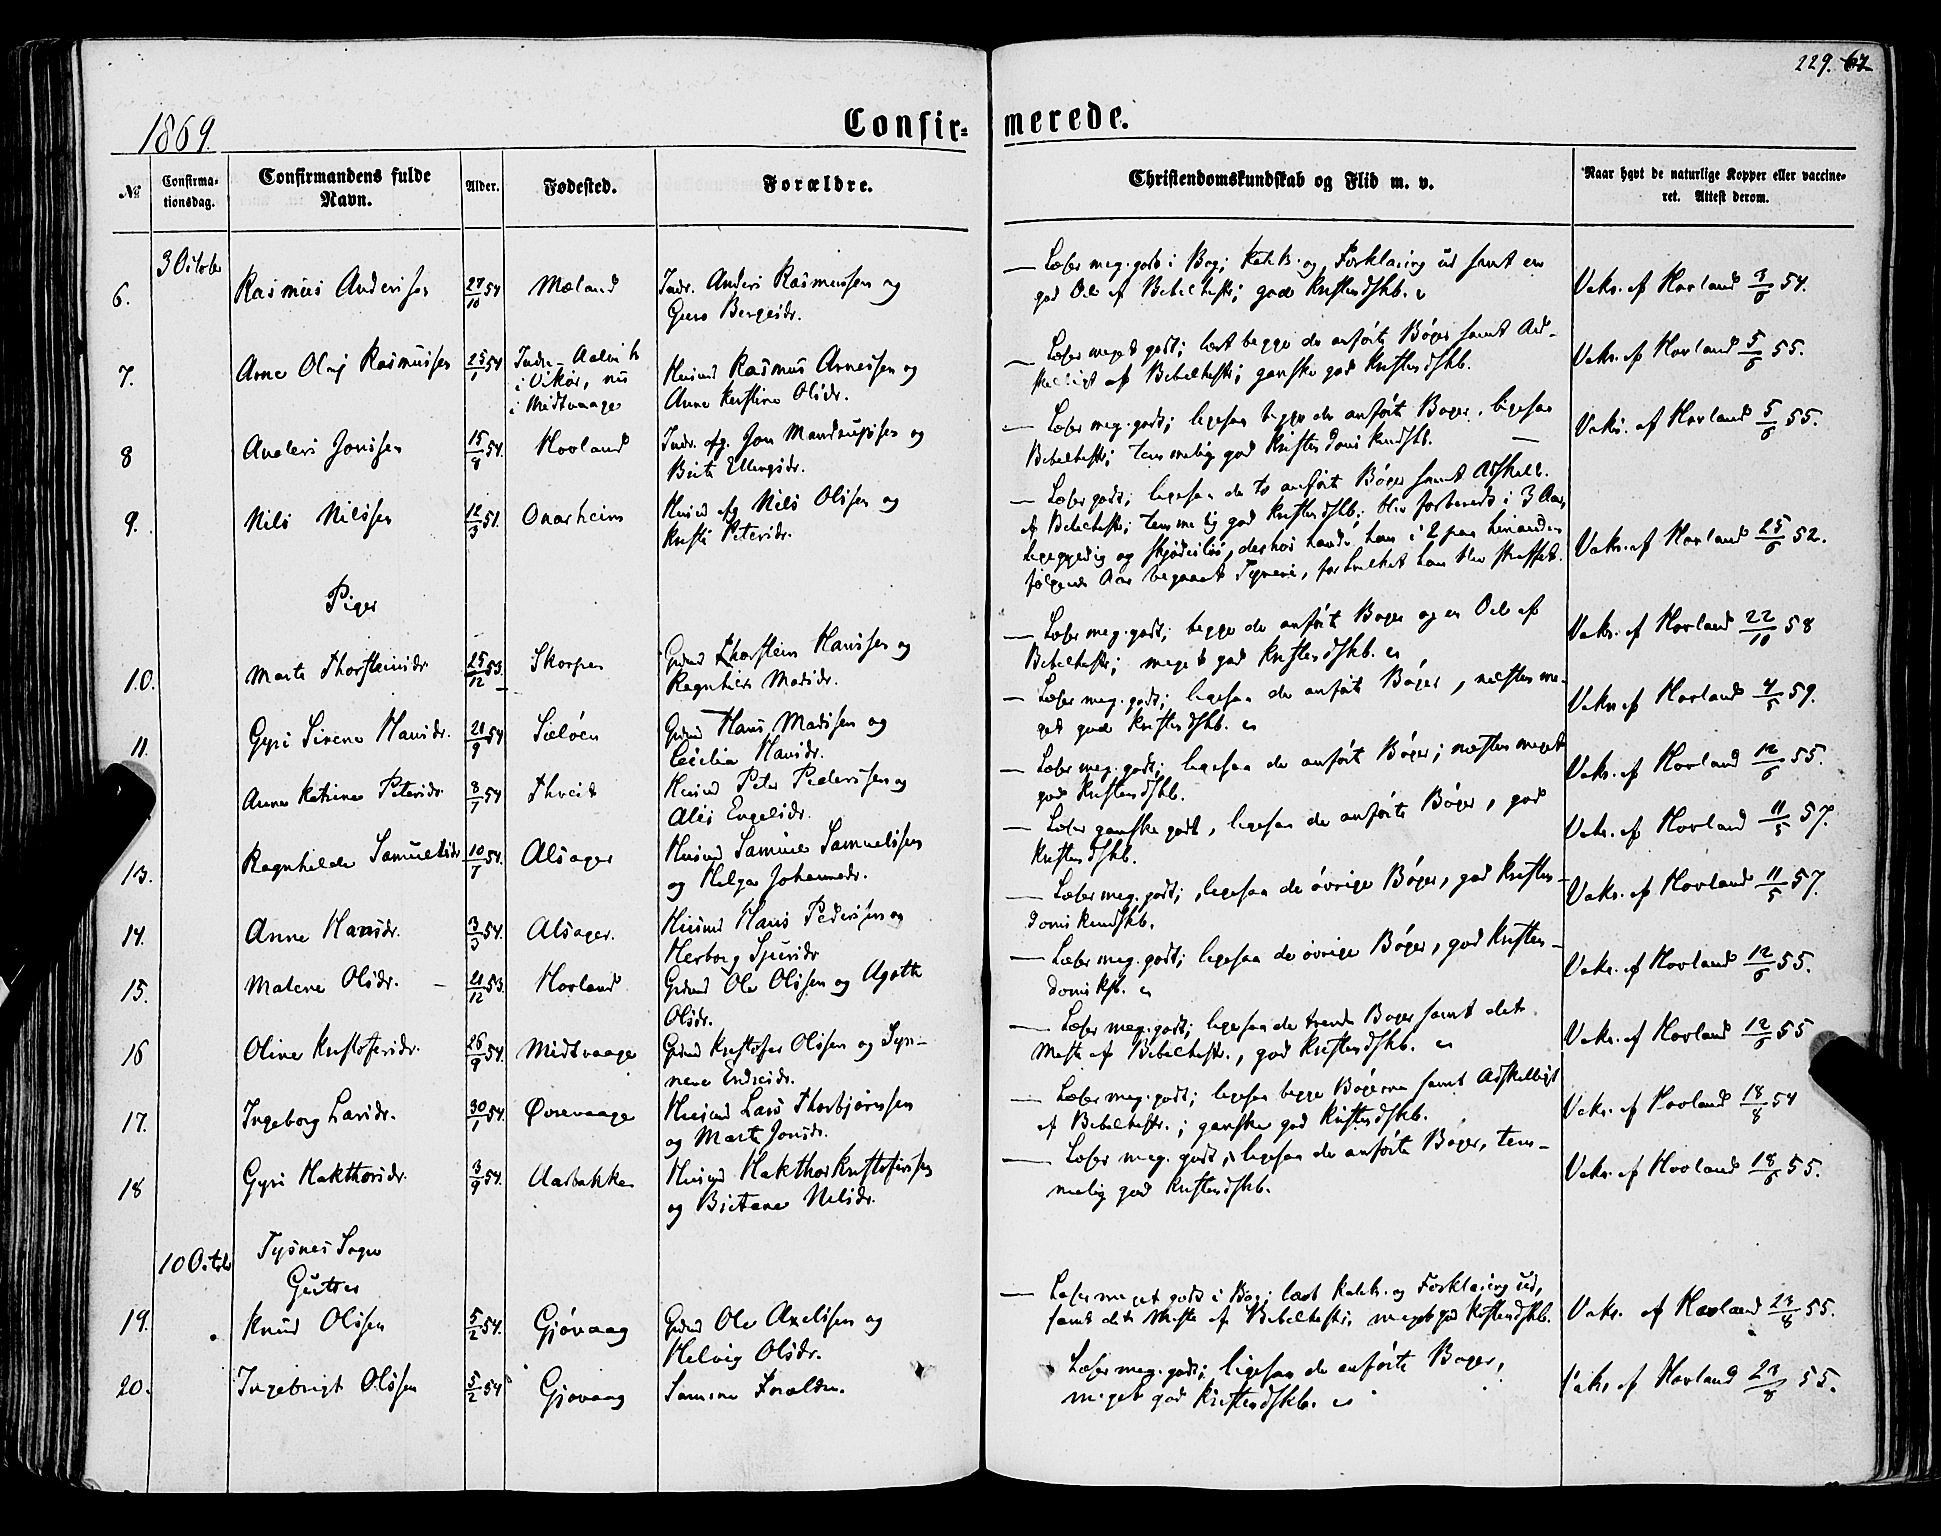 229. 67
1869.
Confir- merede.
No
Confirma-
tionsdag.
Confirmandens fulde
Navn.
Alder.
Fødested.
Forældre.
Christendomskundskab og Flid m. v.
Naar havt de naturlige Kopper eller vaccine-
ret. Attest derom.
3 October
6. Rasmus Andersen 27/10 54 Mæland Indr. Anders Rasmussen og
Guro Bergesdr.
— Læser meg. godt i Bog; Katek. og Forklaring ud samt en
god Del af Bibelhistr; god Kristendskb.
Vakc. af Hovland 3/6 54.
7. Arne Olaj Rasmussen 25/1 54 Indre-Aalvik
i Vikør, nu
i Midtvaage
Husmd Rasmus Arnesen og
Anne Kirstine Olsdr.
— Læser meget godt; læst begge de anførte Bøger samt Ad-
skilligt af Bibelhistr; ganske god Kristendskb.
Vakc. af Hovland 5/6 55.
8 Anders Jonsen 15/8 54. Hovland Indr. ofg. Jon Mandrupsen og
Brita Ellingsdr.
— Læser meg. godt; ligesaa begge de anførte Bøger, ligesaa
Bibelhistr; temmelig god Kristendoms kundskb.
Vakc. af Hovland 5/6 55.
9. Nils Nilssen 12/3 51. Onarheim Husmd ofg Nils Olsen og
Kristi Petersdr.
— Læser godt; ligesaa de to anførte Bøger samt Adskell.
af Bibelhistr; temmelig god Kristendskb; blev forberedt i 3 Aar,
ligegyldig og skjødesløs, derhos havde han i 2 paa hinanden
følgende Aar begaaet Tyveri, for hvilket han blev straffet.
Vakc. af Hovland 25/6 52.
Piger
10. Marta Thorsteinsdr 25/12 53. Skorpen Grdmd Thorstein Hanssen og
Ragnhild Madsdr.
— Læser meg. godt; begge de anførte Bøger og en Del af
Bibelhistr; meget god Kristendskb.
Vakc. af Hovland 22/10 58
11. Gyri Sirene Hansdr. 21/9 54 Sæløen Grdmd Hans Madssen og
Cecilia Hansdr.
— Læser meg. godt; ligesaa de anførte Bøger, næsten me-
get god Kristendskb.
Vakc. af Hovland 4/5 59.
Anna Katrina Petersdr 8/1 54 Thveit Husmd Peter Pederssen og
Alis Engelsdr.
— Læser meg. godt; ligesaa de anførte Bøger; næsten meget
god Kristendskb.
Vakc. af Hovland 12/6 55.
13. Ragnhilda Samuelsdr 10/1 54. Alsager Husmd Samuel Samuelssen
og Helga Johannesdr.
— Læser ganske godt, ligesaa de anførte Bøger, god
Kristendskb.
Vakc. af Hovland 11/5 57.
14. Anna Hansdr. 3/3 54. Alsager. Husmd Hans Pederssen og
Herborg Sjursdr
— Læser meg. godt; ligesaa de øvrige Bøger, god Kristen-
doms kundskb.
Vakc. af Hovland 11/5 57.
15. Malene Olsdr. 21/12 53. Hovland Grdmd Ole Olsen og Agathe
Olsdr.
— Læser meg. godt; ligesaa de øvrige Bøger, god Kristen-
doms kskb.
Vakc. af Hovland 12/6 55.
16 Oline Kristofersdr. 26/9 54. Midtvaage Grdmd Kristofer Olsen og Syn-
neve Endresdr.
— Læser meg. godt; ligesaa de trende Bøger samt det
Meste af Bibelhistr., god Kristendskb.
Vakc. af Hovland 12/6 55
17. Ingeborg Larsdr. 30/1 54. Øvrevaage Husmd Lars Thorbjørnsen
og Marta Jonsdr.
— Læser meg. godt; ligesaa begge Bøgerne samt Adskilligt
af Bibelhistr.; ganske god Kristendskb.
Vakc. af Hovland 18/8 54
18 Gyri Hakthorsdr. 3/9 54. Aarbakken Husmd Hakthor Kristoferssen
og Britane Nilsdr.
— Læser meg. godt, ligesaa de anførte Bøger, tem-
melig god Kristendskb.
Vakc. af Hovland 18/6 55.
10 Octob
Tysnes Sogn
Gutter
19. Knud Olssen 5/2 54. Gjøvaag Grdmd Ole Axelssen og
Helvig Olsdr.
— Læser meget godt i Bog; læst Katek. og Forklaring ud,
samt det Meste af Bibelhistr; meget god Kristendskb.
Vakc. af Hovland 23/8 55.
20. Ingebrigt Olssen 5/2 54 Gjøvaag Samme Forældre.
Læser meg. godt; ligesaa de anførte Bøger,
meget god Kristendskb.
Vakc af Hovland 23/8 55.